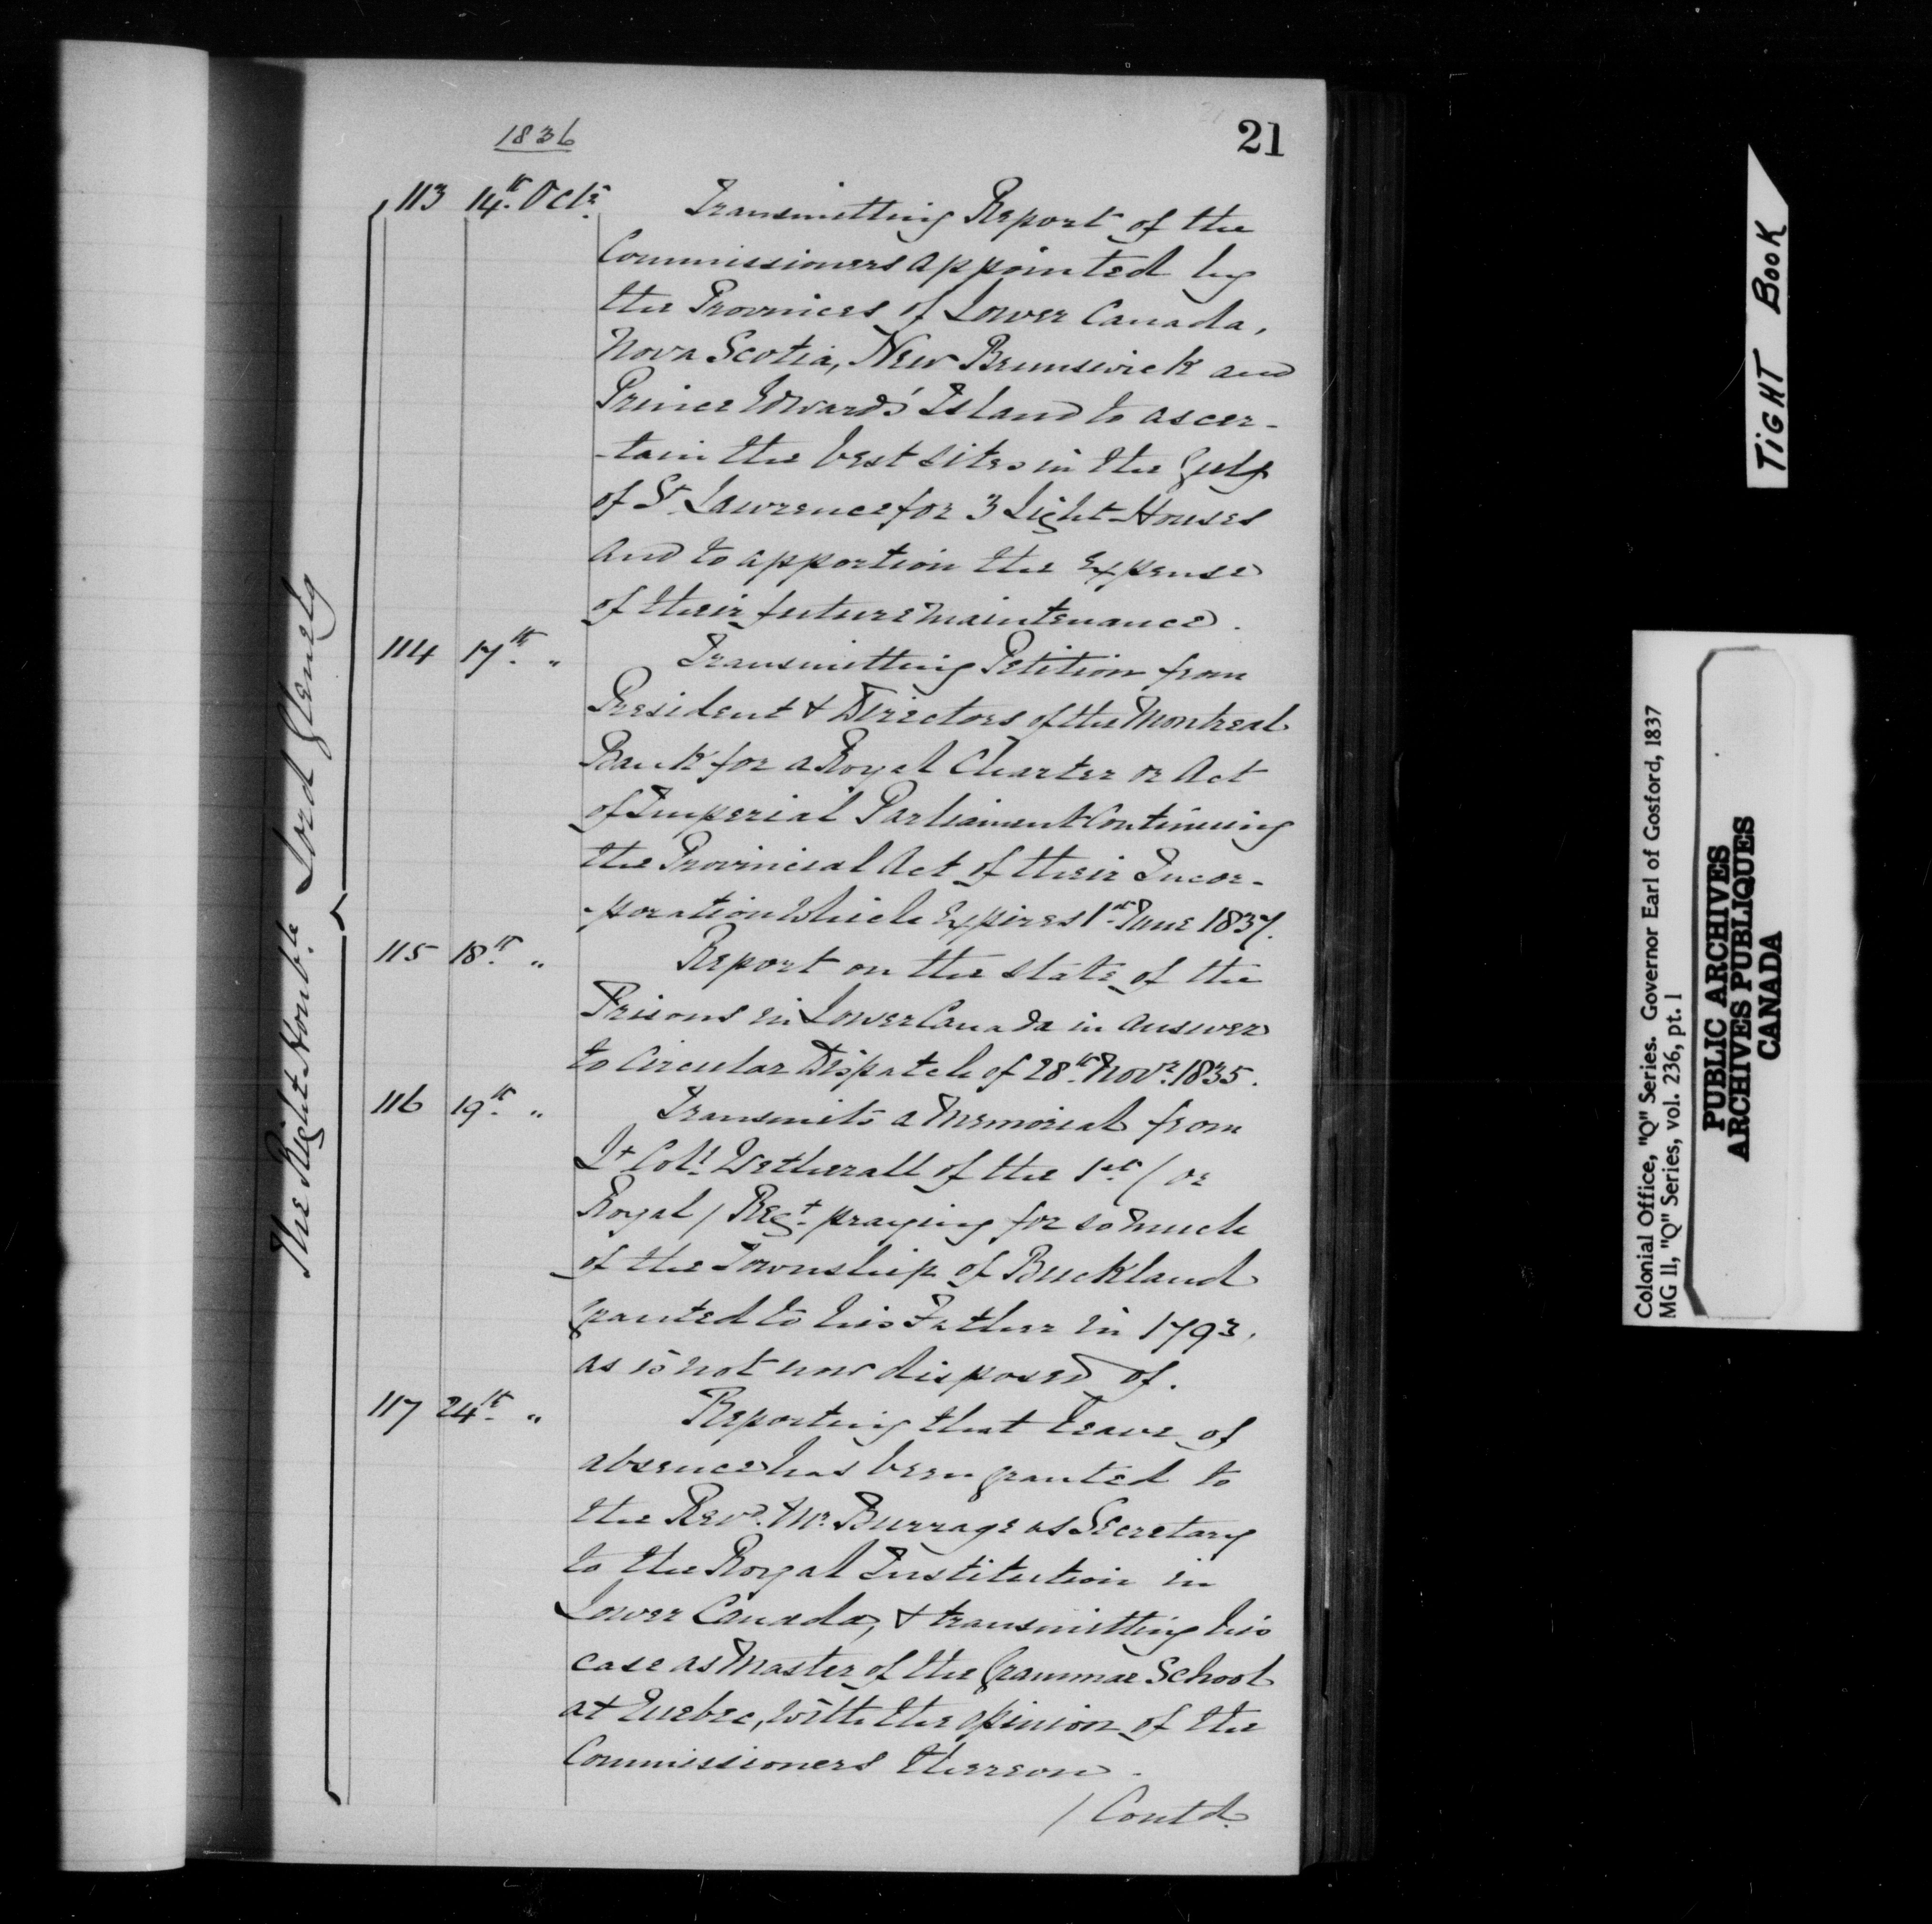 21
1836
The Right Honble Lord Glenelg
113 14th Octr. Transmitting Report of the
Commissioners appointed by
the Provinces of Lower Canada,
Nova Scotia, New Brunswick and
Prince Edwards' Island to ascer-
-tain the best sites in the Gulf
of St Lawrence for 3 Light-Houses
and to apportion the expense
of their future maintenance.
114 17th " Transmitting Petition from
President & Directors of the Montreal
Bank for a Royal Charter or Act
of Imperial Parliament continuing
the Provincial Act of their Incor-
-poration which expires 1st June 1837.
115 18th " Report on the state of the
Prisons in Lower Canada in answer
to circular Dispatch of 28th Novr. 1835.
116 19th " Transmits a Memorial from
Lt Coll. Wetherall of the 1st (or
Royal) Regt. praying for so much
of the Township of Buckland
granted to his Father in 1793,
as is not now disposed of.
117 24th " Reporting that leave of
absence has been granted to
the Revd. Mr. Burrage as Secretary
to the Royal Institution in
Lower Canada, & transmitting his
case as Master of the Grammar School
at Quebec, with the opinion of the
Commissioners thereon.
/ Contd.
TIGHT BOOK
Colonial Office, "Q" Series. Governor Earl of Gosford, 1837
MG 11, "Q" Series, vol. 236, pt. 1
PUBLIC ARCHIVES
ARCHIVES PUBLIQUES
CANADA